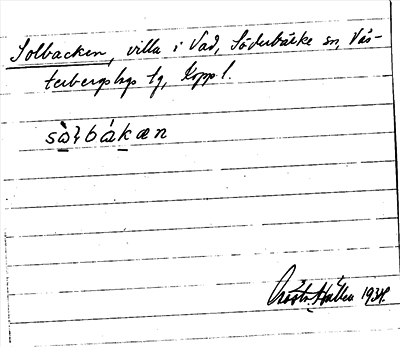 Solbacken, villa i Vad, Söderbärke sn, Väs-
terbergslags tg, Kopp l.
sòlbákæn
Gösta Hallen 1934.